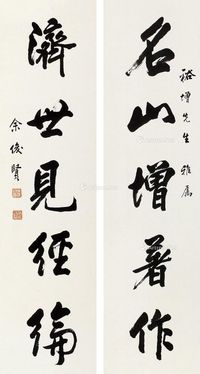 裕增先生雅属
名山增著作
濟世見經綸
余俊賢